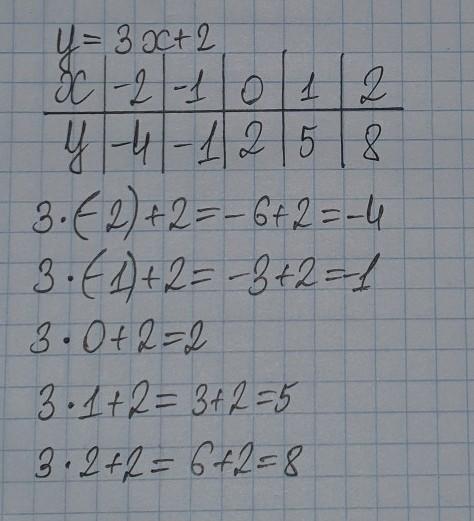 y = 3x+2
x | -2 | -1 | 0 | 1 | 2
y | -4 | -1 | 2 | 5 | 8
3·(-2)+2=-6+2=-4
3·(-1)+2=-3+2=-1
3·0+2=2
3·1+2=3+2=5
3·2+2=6+2=8